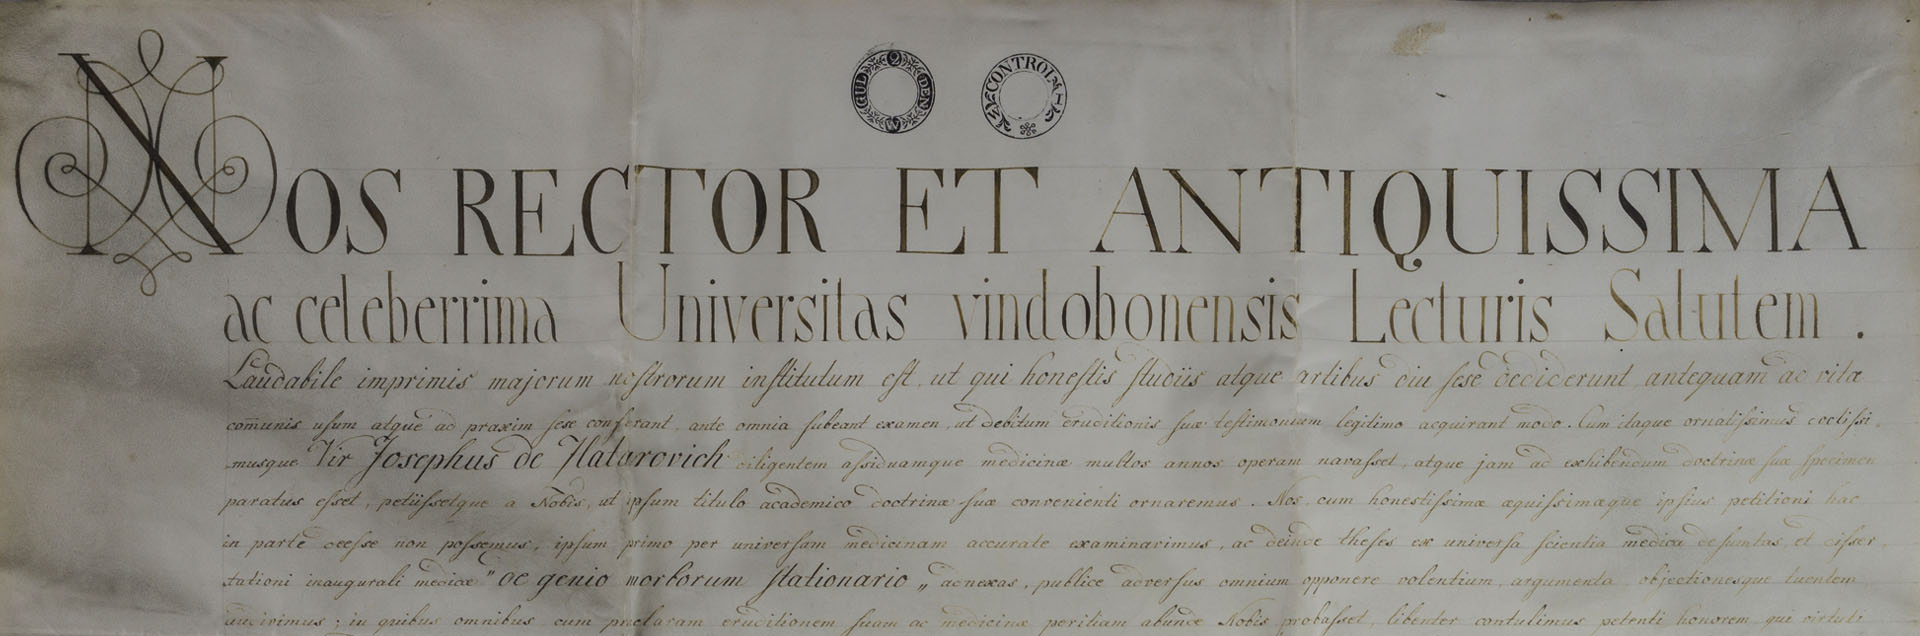 2 GULDEN W
CONTROL
NOS RECTOR ET ANTIQUISSIMA
ac celeberrima Universitas vindobonensis Lecturis Salutem.
Laudabile imprimis majorum nostrorum institutum est, ut qui honestis studiis atque artibus diu sese dediderunt, antequam ac vitæ
com̃unis usum atque ad praxim sese conferant, ante omnia subeant examen, ut debitum eruditionis suæ testimonium legitimo acquirant modo. Cum itaque ornatissimus doctissi-
musque Vir Josephus de Hatarovich diligentem assiduamque medicinæ multos annos operam navasset, atque jam ad exhibendum doctrinæ suæ specimen
paratus esset, petiissetque a Nobis, ut ipsum titulo academico doctrinæ suæ convenienti ornaremus. Nos, cum honestissimæ æquissimæque ipsius petitioni hac
in parte deesse non possemus, ipsum primo per universam medicinam accurate examinavimus, ac deinde theses ex universa scientia medica desumtas, et disser-
tationi inaugurali medicæ "de genio morborum stationario„ adnexas, publice adversus omnium opponere volentium, argumenta objectionesque tuentem
audivimus; in quibus omnibus cum præclaram eruditionem suam ac medicinæ peritiam abunde Nobis probasset, libenter contulimus petenti honorem, qui virtuti